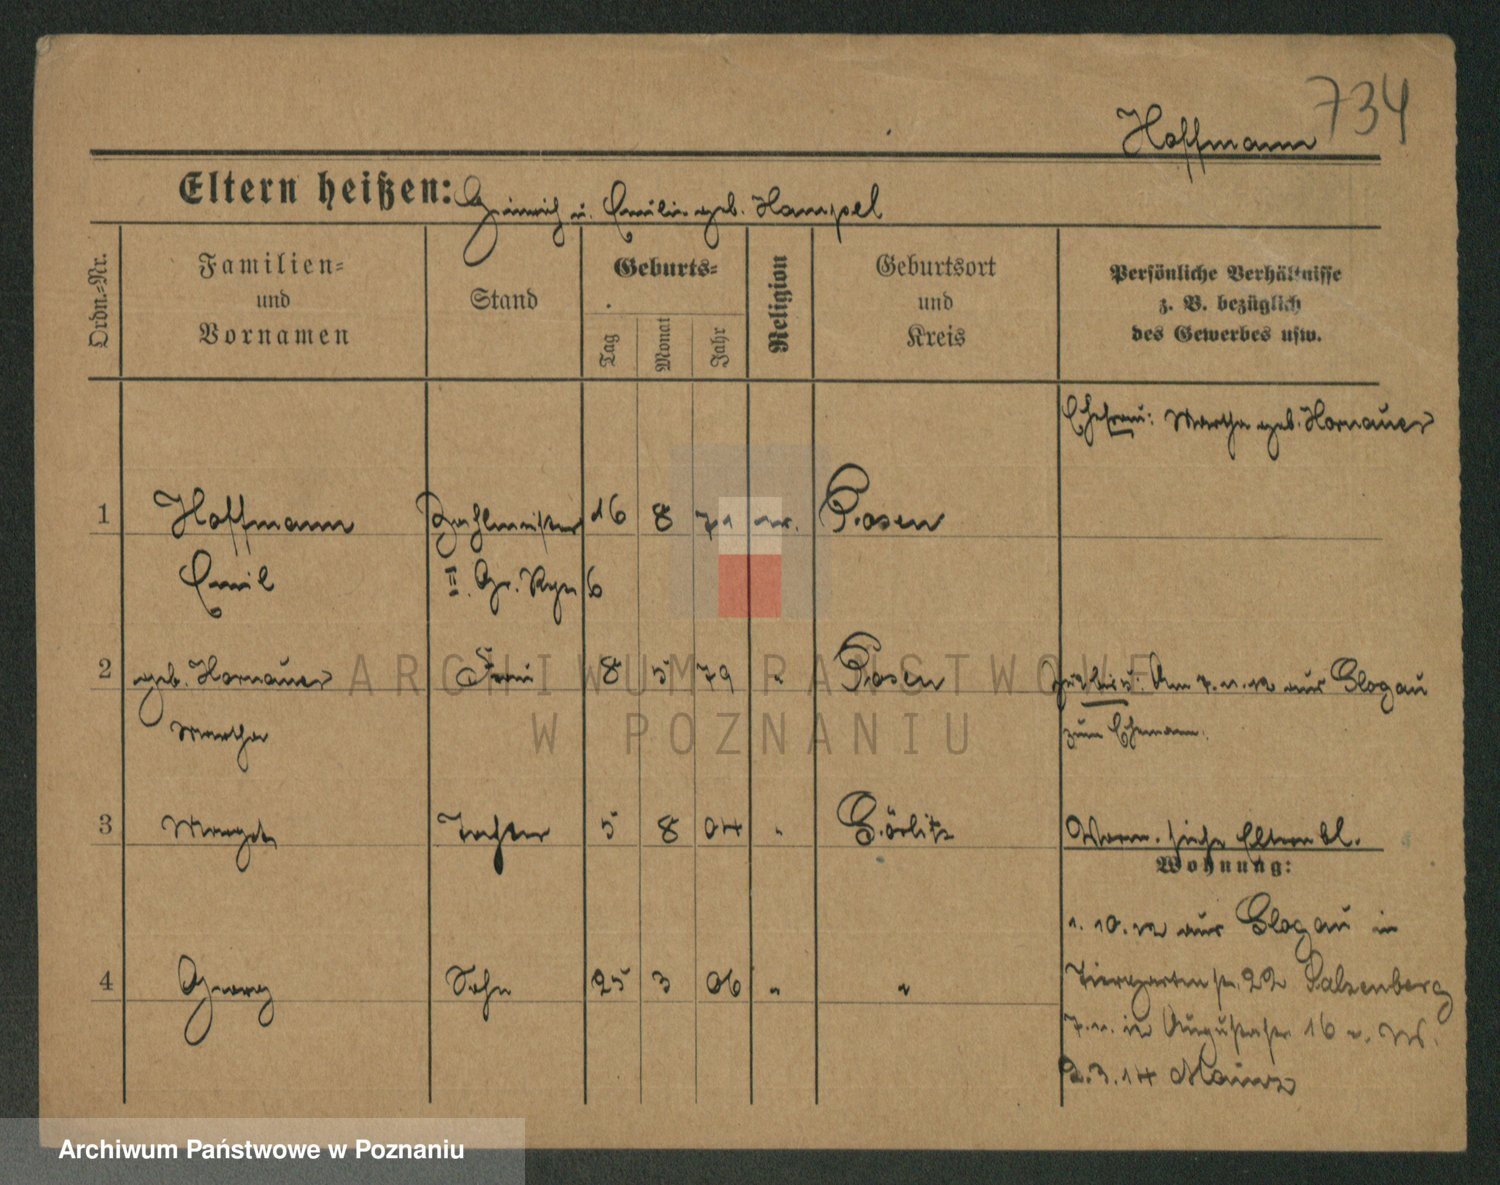 734
Hoffmann
Eltern heißen: Heinrich u. Emilie geb. Hampel
Ordn.-Nr.
Familien-
und
Vornamen
Stand
Geburts-
Tag
Monat
Jahr
Religion
Geburtsort
und
Kreis
Persönliche Verhältnisse
z. B. bezüglich
des Gewerbes usw.
Ehefrau: Martha geb. Hornauer
1 Hoffmann Zahlmeister 16 8 71 ev. Posen
Emil II. Gr. Rgn 6
2 geb. Hornauer Frau 8 5 79 " Posen
Am 7.11.12 aus Glogau
Martha zum Ehemann.
3 Margot Tochter 5 8 04 " Görlitz
Verm. siehe Elternbl.
Wohnung:
1.10.12 aus Glogau in
4 Georg Sohn 25 3 06 " "
Tiergartenstr. 22 Salzenberg
7.11.12 Augustastr 16 v. W.
2.3.14 Mainz
ARCHIWUM PAŃSTWOWE
W POZNANIU
Archiwum Państwowe w Poznaniu